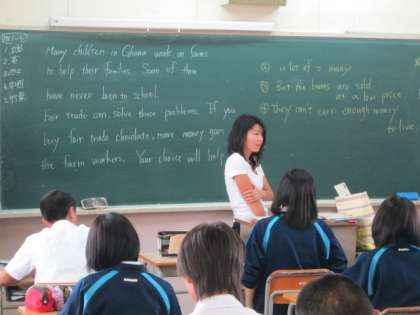 Many children in Ghana work on farms
to help their families. Some of them
have never been to school.
Fair trade can solve these problems. If you
buy fair trade chocolate, more money goes
the farm workers. Your choice will help
a lot of = many
But the beans are sold
at a low price
They can't earn enough money
to live.